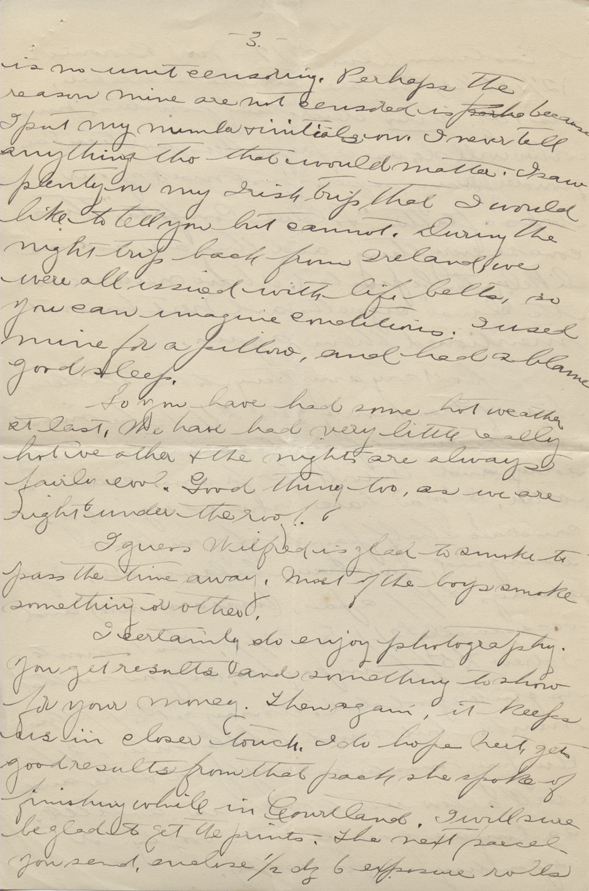 -3.-
is no unit censoring. Perhaps the
reason mine are not censored is because
I put my number & initials on. I never tell
anything tho that would matter. I saw
plenty on my Irish trip that I would
like to tell you but cannot. During the
night trip back from Ireland, we
were all issied with life belts, so
you can imagine conditions. I used
mine for a pillow, and had a blame
good sleep.
So you have had some hot weather
at last, We have had very little really
hot weather & the nights are always
fairly cool. Good thing too, as we are
right under the roof.
I guess Wilfred is glad to smoke to
pass the time away. Most of the boys smoke
something or other.
I certainly do enjoy photography.
You get results and something to show
for your money. Then again, it keeps
us in closer touch. I do hope gets
good results from that pack she spoke of
finishing while in Courtland. I will sure
be glad to get the prints. The next parcel
you send, enclose 1/2 dz 6 exposure rolls